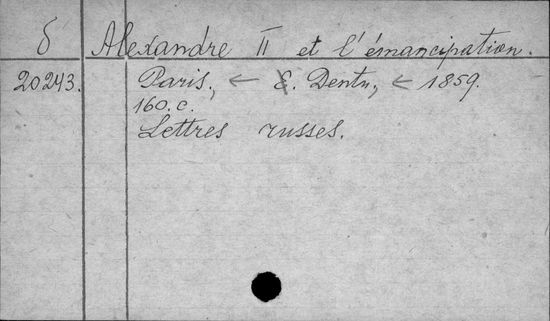 δ Alexandre II et l'émancipation.
20243. Paris, ← E. Dentu, ← 1859.
160. c.
Lettres russes.